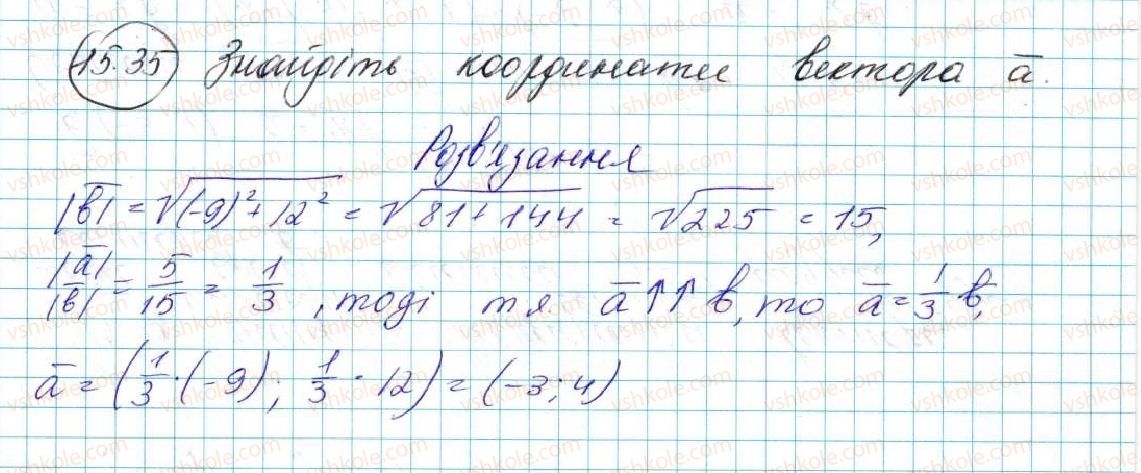 15.35 Знайдіть координати вектора a̅.
Розв'язання
|b̅| = √((-9)² + 12²) = √(81 + 144) = √225 = 15,
|a̅|/|b̅| = 5/15 = 1/3, тоді т.я. a̅ ↑↑ b, то a̅ = 1/3 b̅,
a̅ = (1/3 · (-9); 1/3 · 12) = (-3; 4)